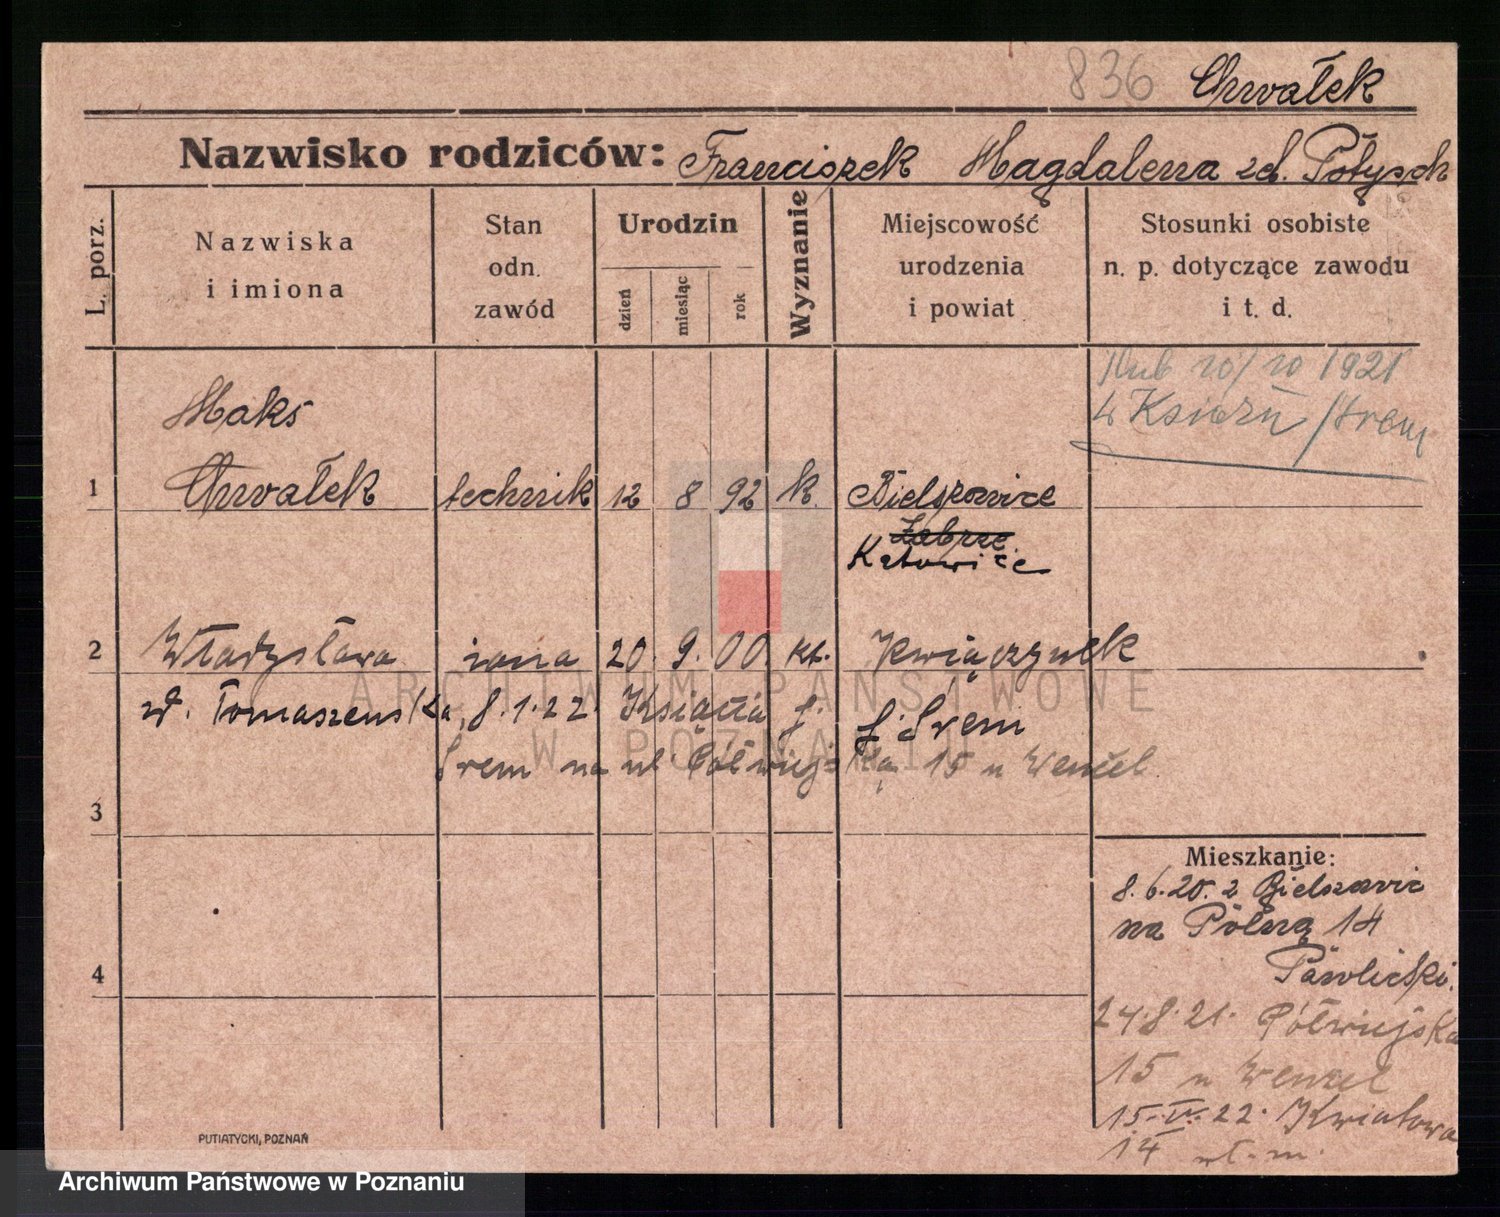 836 Chwałek
Nazwisko rodziców: Franciszek Magdalena zd. Potysch
L. porz.
Nazwiska
i imiona
Stan
odn.
zawód
Urodzin
dzień
miesiąc
rok
Wyznanie
Miejscowość
urodzenia
i powiat
Stosunki osobiste
n. p. dotyczące zawodu
i t. d.
ślub 10/10 1921
w Książu /Śrem
Maks
1 Chwałek technik 12 8 92 k. Bielszowice
Zabrze
Katowice
2 Władysława żona 20. 9. 00 kt. Kwiączynek
zd. Tomaszewska, 8.1.22 Książa p. p. Śrem
Śrem na ul Półwiejską 15 u Wenzel
3
Mieszkanie:
8.6.20. z Bielszowic
na Polną 14
Pawlicki.
4
24.8.21. Półwiejska
15 u Wenzel
15.IV.22. Kwiatowa
14
PUTIATYCKI, POZNAŃ
ARCHIWUM PAŃSTWOWE
W POZNANIU
Archiwum Państwowe w Poznaniu